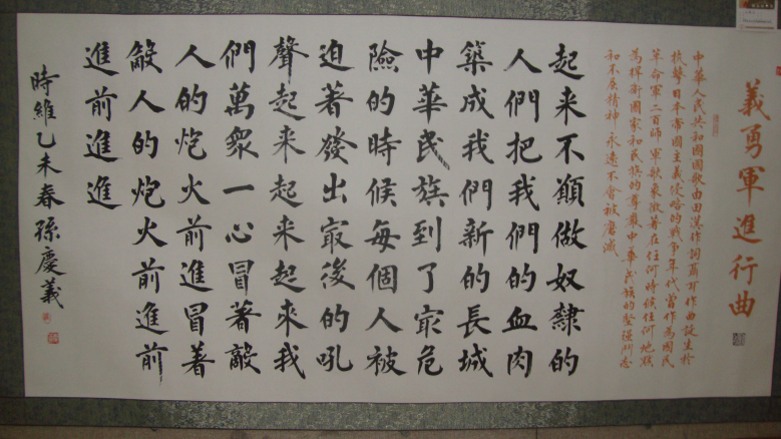 義勇軍進行曲
中華人民共和國國歌由田漢作詞聶耳作曲誕生於
抗擊日本帝國主義侵略的戰争年代曾作為國民
革命軍二百師軍歌象徵著在任何時候任何地點
為捍衛國家和民族的尊嚴中華民族的堅强鬥志
和不屈精神 永遠不會被磨滅
起来不願做奴隸的
人們把我們的血肉
築成我們新的長城
中華民族到了最危
險的時候每個人被
迫著發出最後的吼
聲起来起来起来我
們萬衆一心冒著敵
人的炮火前進冒著
敵人的炮火前進前
進前進進
時維乙未春孫慶義